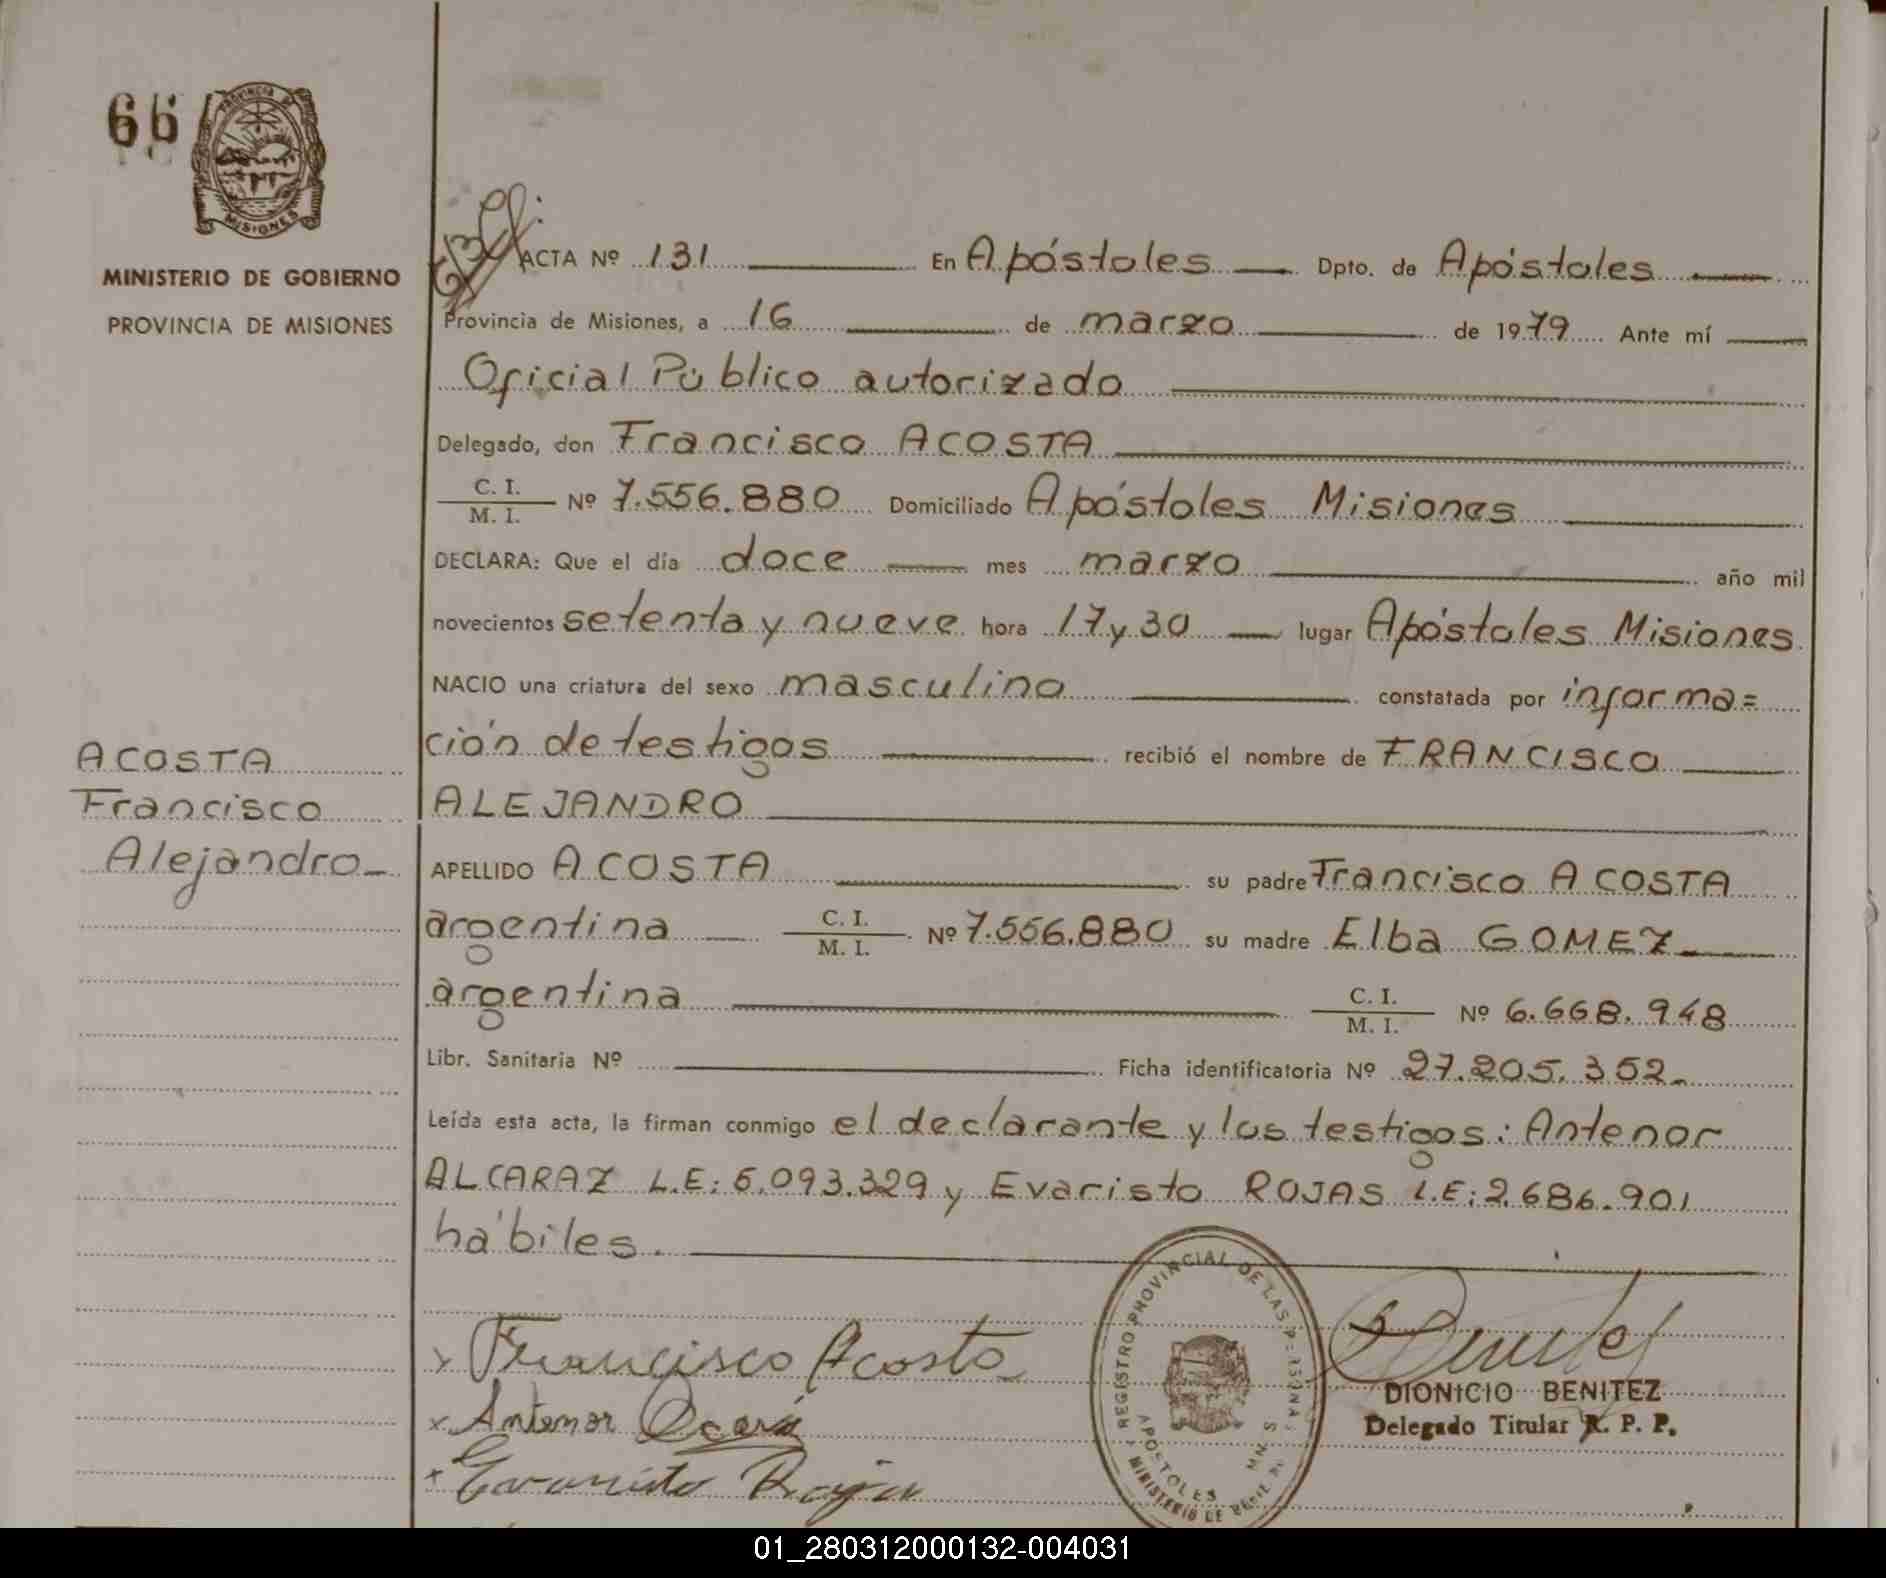 66
PROVINCIA DE
MISIONES
MINISTERIO DE GOBIERNO
PROVINCIA DE MISIONES
ACTA Nº 131 En Apóstoles Dpto. de Apóstoles
Provincia de Misiones, a 16 de marzo de 1979 Ante mí
Oficial Público autorizado
Delegado, don Francisco ACOSTA
C. I.
M. I. Nº 7.556.880 Domiciliado Apóstoles Misiones
DECLARA: Que el día doce mes marzo año mil
novecientos setenta y nueve hora 17 y 30 lugar Apóstoles Misiones
NACIO una criatura del sexo masculino constatada por informa=
ción de testigos recibió el nombre de FRANCISCO
ALEJANDRO
ACOSTA
Francisco
Alejandro
APELLIDO ACOSTA su padre Francisco ACOSTA
argentina C. I. M. I. Nº 7.556.880 su madre Elba GOMEZ
argentina C. I. M. I. Nº 6.668.948
Libr. Sanitaria Nº Ficha identificatoria Nº 27.205.352.
Leída esta acta, la firman conmigo el declarante y los testigos: Antenor
ALCARAZ L.E: 6.093.329 y Evaristo ROJAS L.E: 2.686.901
hábiles.
x Francisco Acosta
x Antenor
x Evaristo Rojas
REGISTRO PROVINCIAL DE LAS PERSONAS
APOSTOLES MNES
MINISTERIO DE
DIONICIO BENITEZ
Delegado Titular R. P. P.
01_280312000132-004031